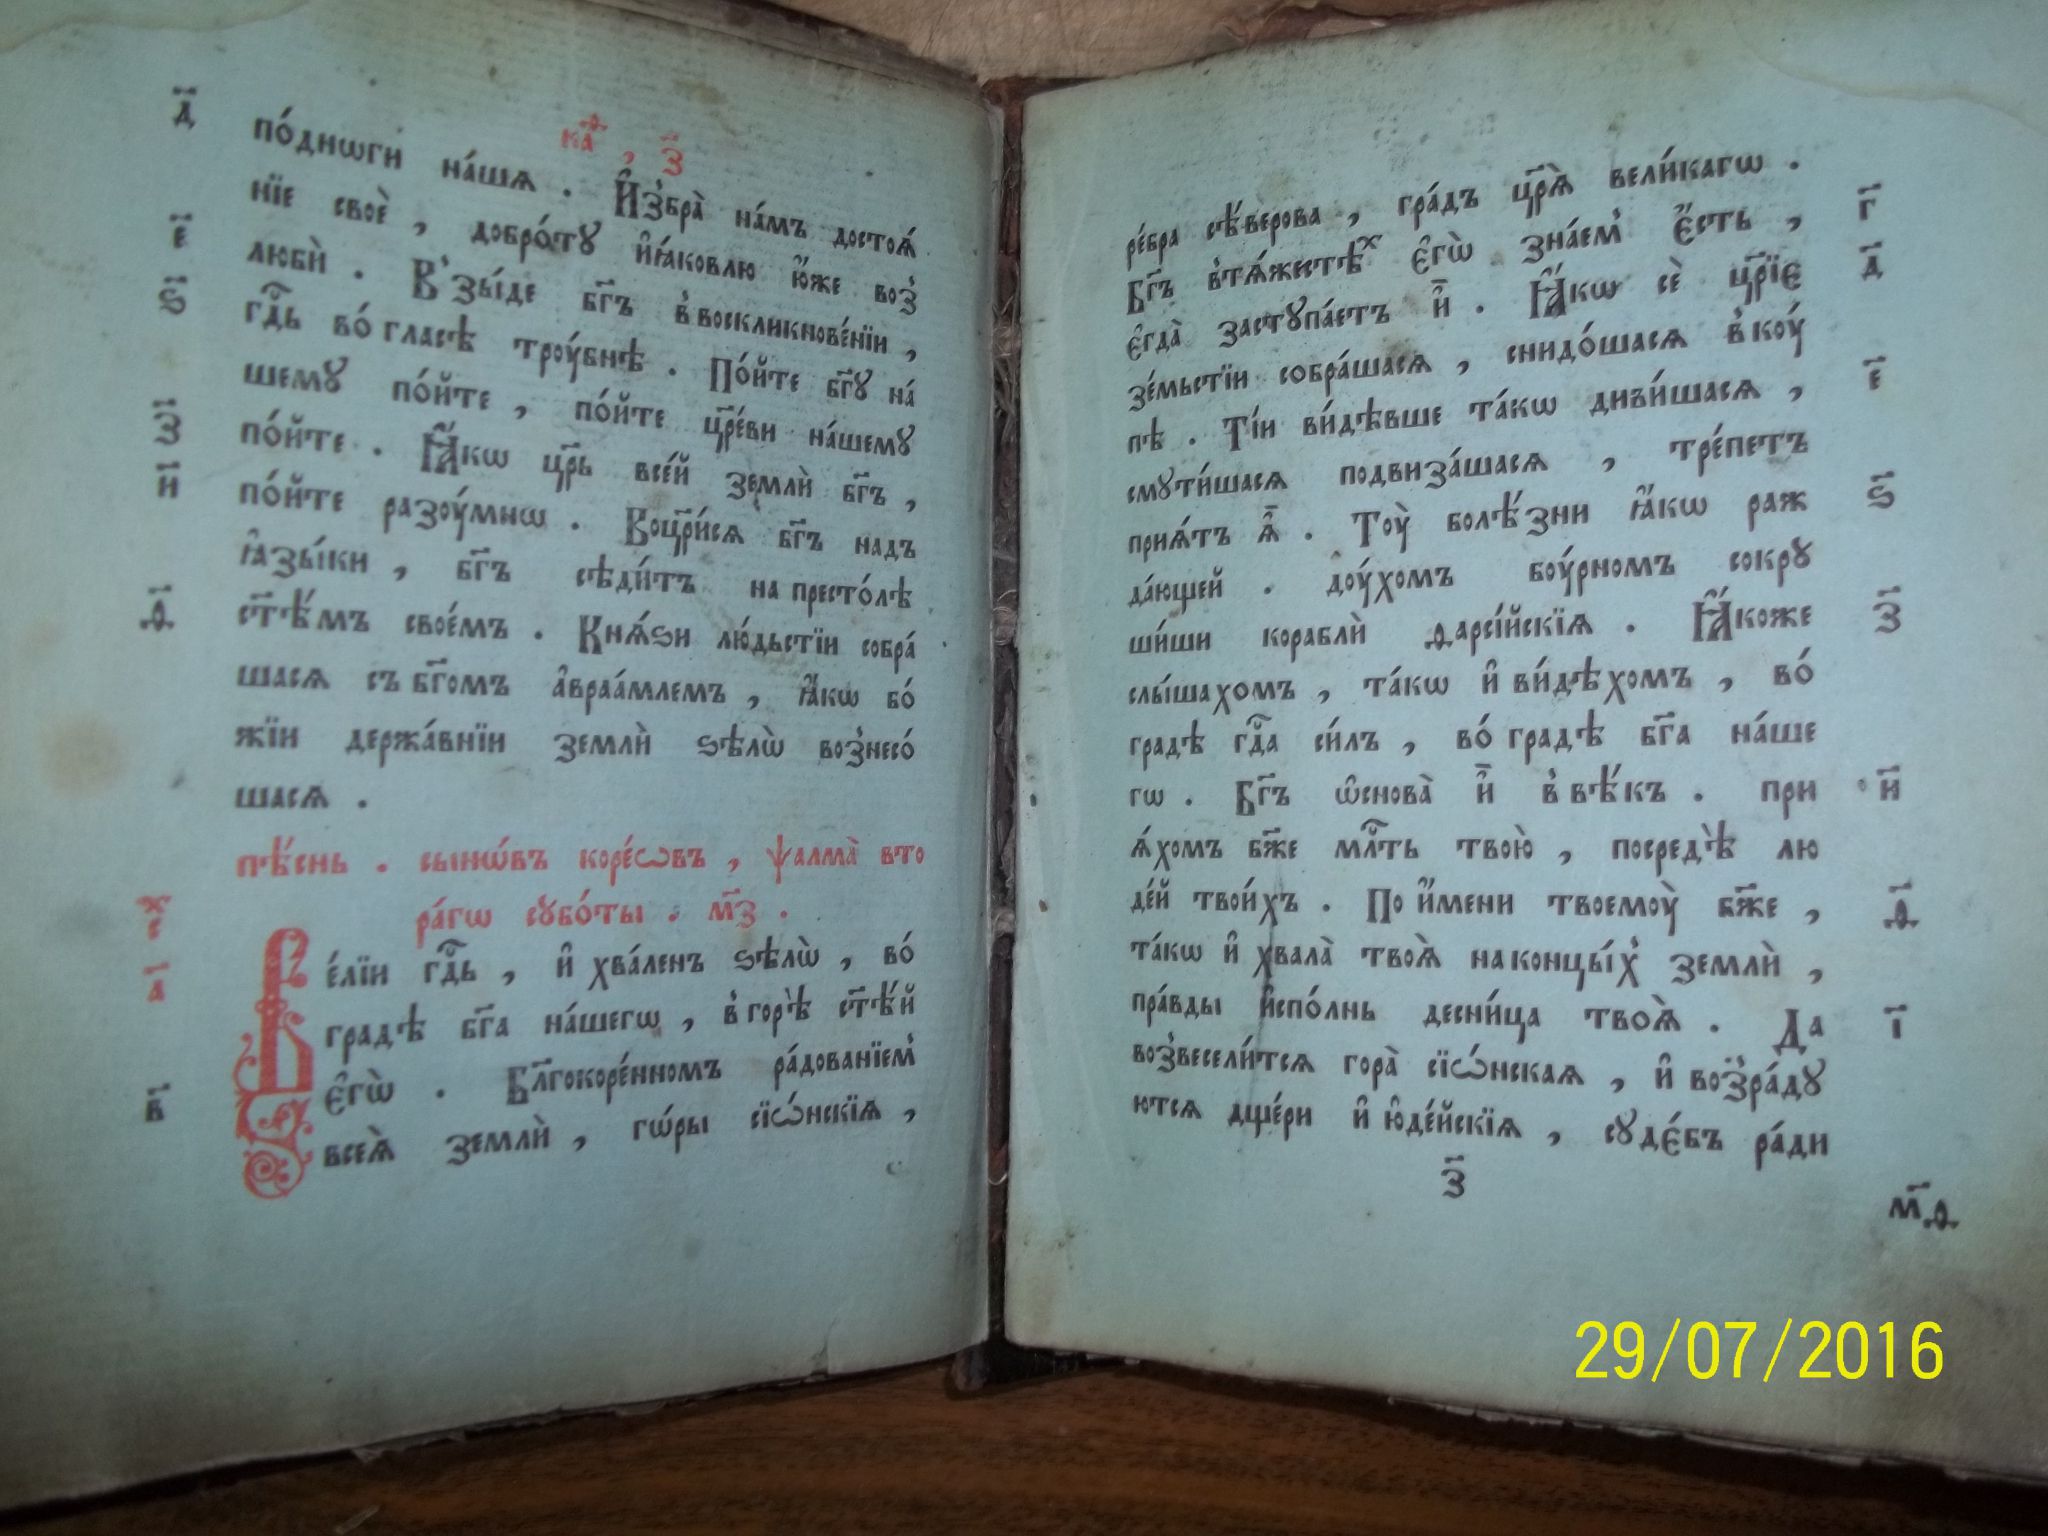 каѳ, з҃
д҃ по́дноги на́шѧ . И҆збра̀ на́мъ достоѧ́
нїе своѐ , добро́тꙋ и҆ꙗ́ковлю ю҆́же воз̾
е҃ любѝ . В̾зы́де бг҃ъ в̾воскликнове́нїи ,
ѕ҃ гдⷭ҇ь во́ гласѣ трꙋ́бнѣ . По́йте бг҃ꙋ на́
шемꙋ по́йте , по́йте цр҃е́ви на́шемꙋ
з҃ по́йте . Ꙗ҆́кѡ цр҃ь все́й землѝ бг҃ъ ,
и҃ по́йте разоу́мнѡ . Воцр҃и́сѧ бг҃ъ надъ
ꙗ҆зы́ки , бг҃ъ сѣди́тъ на престо́лѣ
ѳ҃ ст҃ѣ́мъ свое́мъ . Кнѧ́ѕи лю́дьстїи собра́
шасѧ съ бг҃омъ а҆враа́млемъ , ꙗ҆́кѡ бо́
жїи держа́внїи землѝ ѕѣлѡ̀ воз̾несо́
шасѧ .
пѣ́снь . сынѡ́въ коре́ѻвъ , ѱалма̀ вто
ра́гѡ сꙋбо́ты . м҃з .
а҃ Ве́лїи гдⷭ҇ь , и҆ хва́ленъ ѕѣлѡ̀ , во́
градѣ бг҃а на́шегѡ , в̾горѣ̀ ст҃ѣ́й
в҃ є҆гѡ̀ . Бл҃гокоре́нномъ ра́дованїем̾
всеѧ̀ землѝ , го́ры сїѻ́нскїѧ ,
ре́бра сѣ́верова , гра́дъ цр҃ѧ̀ вели́кагѡ .
г҃ Бг҃ъ в̾тѧ́жестѣⷯ є҆гѡ̀ зна́ем̾ є҆́сть ,
д҃ є҆гда̀ застꙋпа́етъ и҆̀ . Ꙗ҆́кѡ сѐ цр҃їє
зе́мьстїи собра́шасѧ , снидо́шасѧ в̾коу́
е҃ пѣ . Ті́и ви́дѣвше та́кѡ дивы́шасѧ ,
смꙋти́шасѧ подвиза́шасѧ , тре́петъ
ѕ҃ приѧ́тъ ѧ҆̀ . Тоу̀ болѣ́зни ꙗ҆́кѡ раж
да́ющей . доу́хомъ боу́рномъ сокрꙋ
з҃ ши́ши кораблѝ ѳарсі́йскїѧ . Ꙗ҆́коже
слы́шахомъ , та́кѡ и҆ ви́дѣхомъ , во́
градѣ гдⷭ҇а си́лъ , во́ градѣ бг҃а на́ше
и҃ гѡ . Бг҃ъ ѡ҆снова̀ и҆̀ в̾ вѣ́къ . при
ѧ́хомъ бж҃е млⷭ҇ть твою̀ , посредѣ̀ лю
ѳ҃ де́й твои́хъ . По и҆́мени твоемоу̀ бж҃е ,
та́кѡ и҆ хвала̀ твоѧ̀ на концы́х̾ землѝ ,
і҃ пра́вды и҆спо́лнь десни́ца твоѧ̀ . Да
воз̾весели́тсѧ гора̀ сїѻ́нскаѧ , и҆ воз̾ра́дꙋ
ютсѧ дще́ри и҆ ю҆де́йскїѧ , сꙋде́бъ ра́ди
з҃
м҃ѳ
29/07/2016